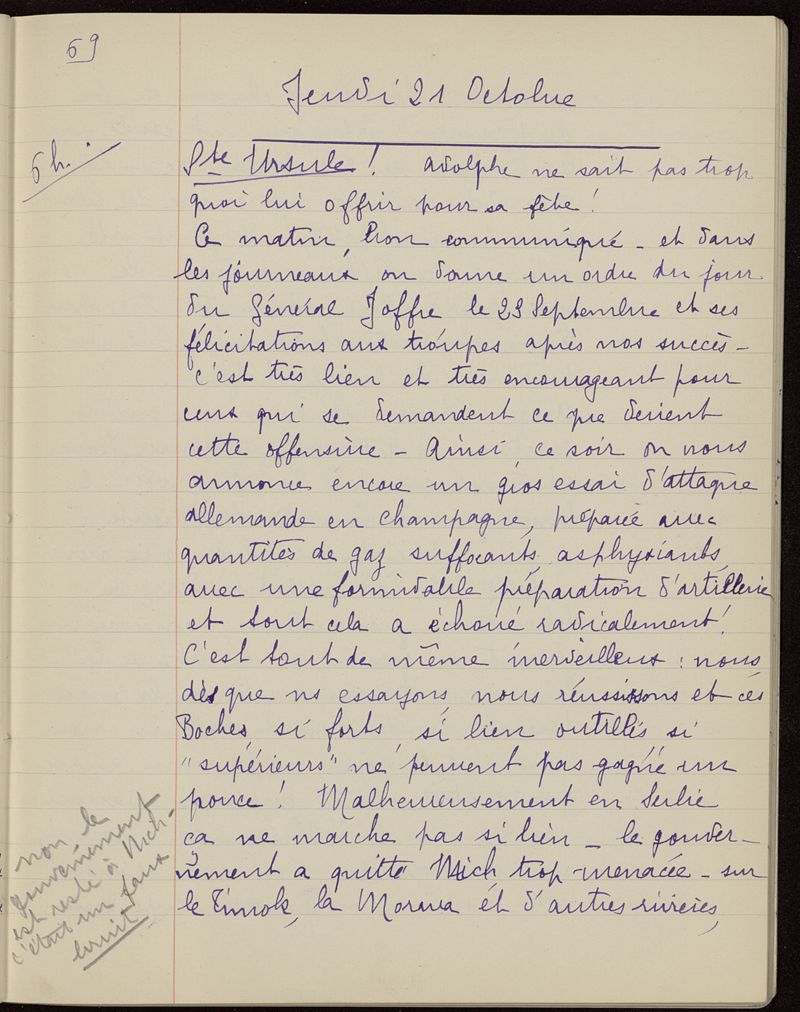 69
Jeudi 21 Octobre
6 h.
Ste Ursule ! Adolphe ne sait pas trop
quoi lui offrir pour sa fête !
Ce matin, bon communiqué - et dans
les journeaux on donne un ordre du jour
du Général Joffre le 23 Septembre et ses
félicitations aux troupes après nos succès -
C'est très bien et très encourageant pour
ceux qui se demandent ce que devient
cette offensive - Ainsi, ce soir on nous
annonce encore un gros essai d'attaque
allemande en Champagne, préparée avec
quantités de gaz suffocants, asphyxiants,
avec une formidable préparation d'artillerie
et tout cela a échoué radicalement !
C'est tout de même merveilleux : nous
dès que ns essayons, nous réussissons et ces
Boches, si forts, si bien outillés si
"supérieurs" ne peuvent pas gagné un
pouce ! Malheureusement en Serbie
ça ne marche pas si bien - le gouver-
nement a quitté Nich trop menacée - sur
le Timok, la Morava et d'autres rivières,
non le
gouvernement
est resté à Nich -
c'était un faux
bruit